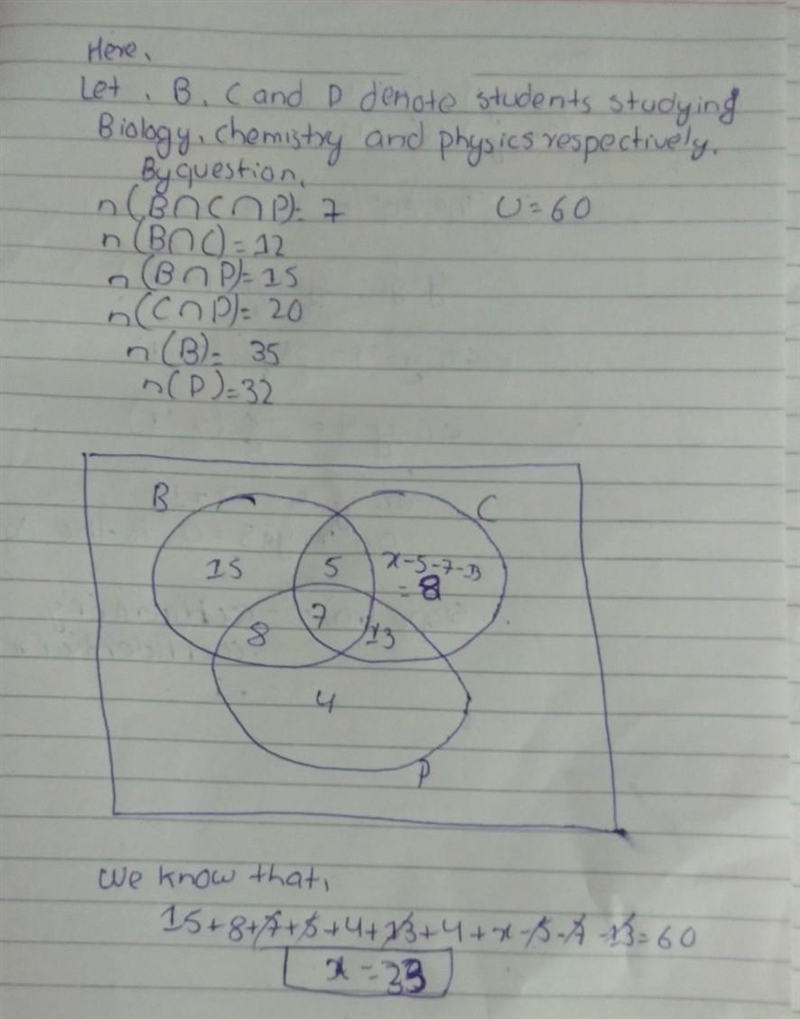 Here,
Let, B, C and P denote students studying
Biology, chemistry and physics respectively.
By question,
n(B∩C∩P)= 7 U=60
n(B∩C)=12
n(B∩P)=15
n(C∩P)=20
n(B)= 35
n(P)=32
B
C
15 5 x-5-7-13
= 8
8 7 13
4
P
We know that,
15+8+7+5+4+13+4+x-5-7-13=60
x=33